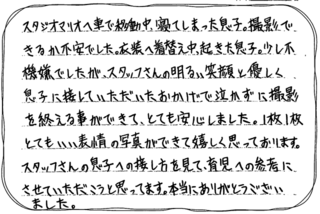 スタジオマリオへ車で移動中、寝てしまった息子。撮影で
きるか不安でした。衣装へ着替え中、起きた息子。少し不
機嫌でしたが、スタッフさんの明るい笑顔と優しく
息子に接していただいたおかげで泣かずに撮影
を終える事ができて、とても安心しました。1枚1枚
とてもいい表情の写真ができて嬉しく思っております。
スタッフさんの息子への接し方を見て、育児への参考に
させていただこうと思ってます。本当にありがとうござい
ました。